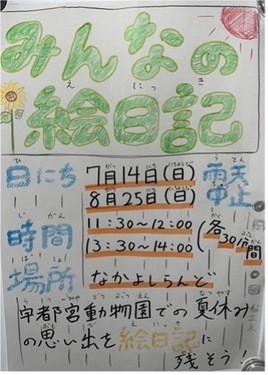 みんなの
え にっ き
絵日記
日にち 7月14日(日) 雨天
8月25日(日) 中止
時間 11:30~12:00
13:30~14:00 (各30分間)
場所 なかよしらんど
宇都宮動物園での夏休み
の思い出を絵日記に
残そう!